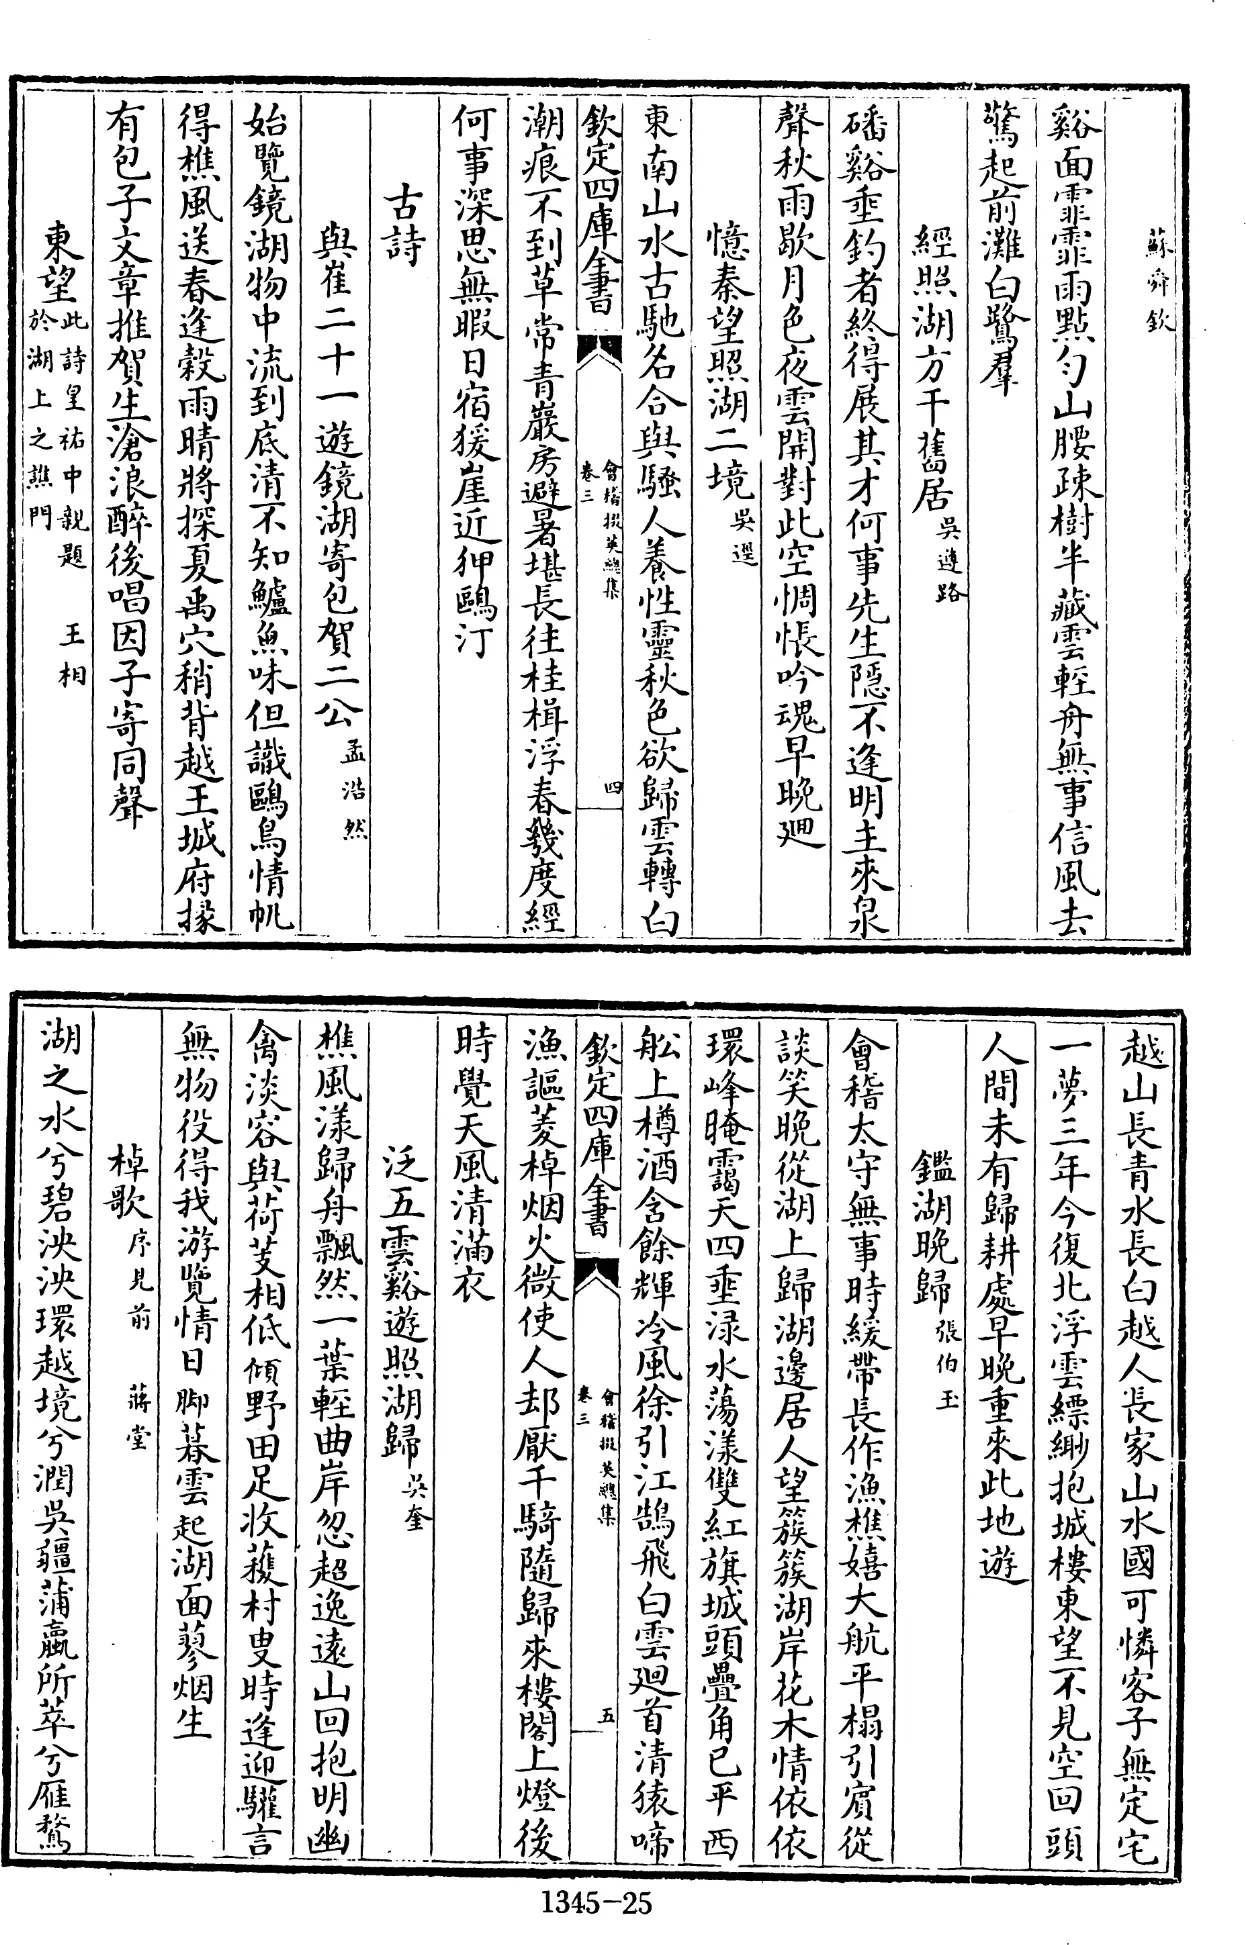 蘇舜欽
谿面霏霏雨點勻山腰疎樹半藏雲輕舟無事信風去
驚起前灘白鷺羣
經照湖方干舊居吳遵路
磻谿垂釣者終得展其才何事先生隱不逢明主來泉
聲秋雨歇月色夜雲開對此空惆悵吟魂早晚迴
憶秦望照湖二境吳遷
東南山水古馳名合與騷人養性靈秋色欲歸雲轉白
欽定四庫全書 會稽掇英總集 卷三 四
潮痕不到草常青巖房避暑堪長往桂楫浮春幾度經
何事深思無暇日宿猨崖近狎鷗汀
古詩
與崔二十一遊鏡湖寄包賀二公孟浩然
始覽鏡湖物中流到底清不知鱸魚味但識鷗鳥情帆
得樵風送春逢穀雨晴將探夏禹穴稍背越王城府掾
有包子文章推賀生滄浪醉後唱因子寄同聲
東望此詩皇祐中親題於湖上之譙門 王相
越山長青水長白越人長家山水國可憐客子無定宅
一夢三年今復北浮雲縹緲抱城樓東望不見空回頭
人間未有歸耕處早晚重來此地遊
鑑湖晚歸張伯玉
會稽太守無事時緩帶長作漁樵嬉大航平榻引賓從
談笑晚從湖上歸湖邊居人望簇簇湖岸花木情依依
環峰晻靄天四垂渌水蕩漾雙紅旗城頭疊角已平西
舩上樽酒含餘輝冷風徐引江鵠飛白雲迴首清猿啼
欽定四庫全書 會稽掇英總集 卷三 五
漁謳菱棹烟火微使人却厭千騎隨歸來樓閣上燈後
時覺天風清滿衣
泛五雲谿遊照湖歸吳奎
樵風漾歸舟飄然一葉輕曲岸忽超逸遠山回抱明幽
禽淡容與荷芰相低傾野田足收穫村叟時逢迎驩言
無物役得我游覽情日脚暮雲起湖面蓼烟生
棹歌序見前 蔣堂
湖之水兮碧泱泱環越境兮潤吳疆蒲蠃所萃兮雁鶩
1345-25